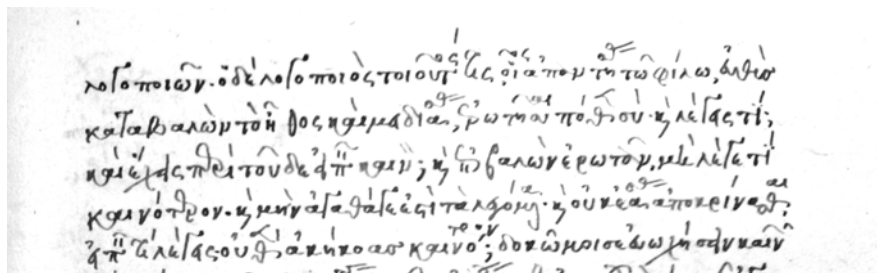 λογοποιῶν. ὁ δὲ λογοποιὸς τοιοῦτός τις, οἷος ἀπαντήσας τῷ φίλῳ, εὐθὺς
καταβαλὼν τὸ ἦθος καὶ μειδιάσας, ἐρωτῆσαι πόθεν σύ· καὶ λέγεις τί;
καὶ ἔχεις περὶ τοῦδε εἰπεῖν καινόν; καὶ ἐπιβαλὼν ἐρωτᾶν, μὴ λέγεταί τι
καινότερον. καὶ μὴν ἀγαθά γε ἐστὶ τὰ λεγόμενα· καὶ οὐκ ἐάσας ἀποκρίνασθαι,
εἰπεῖν τί λέγεις οὐθὲν ἀκήκοας καινότερον; δοκῶ μοι σε εὐωχήσειν καινῶν